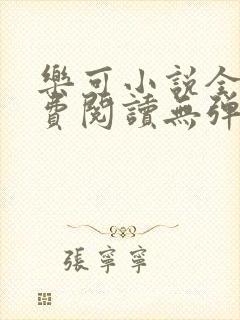 樂可小說全
費閱讀無彈
張寧寧